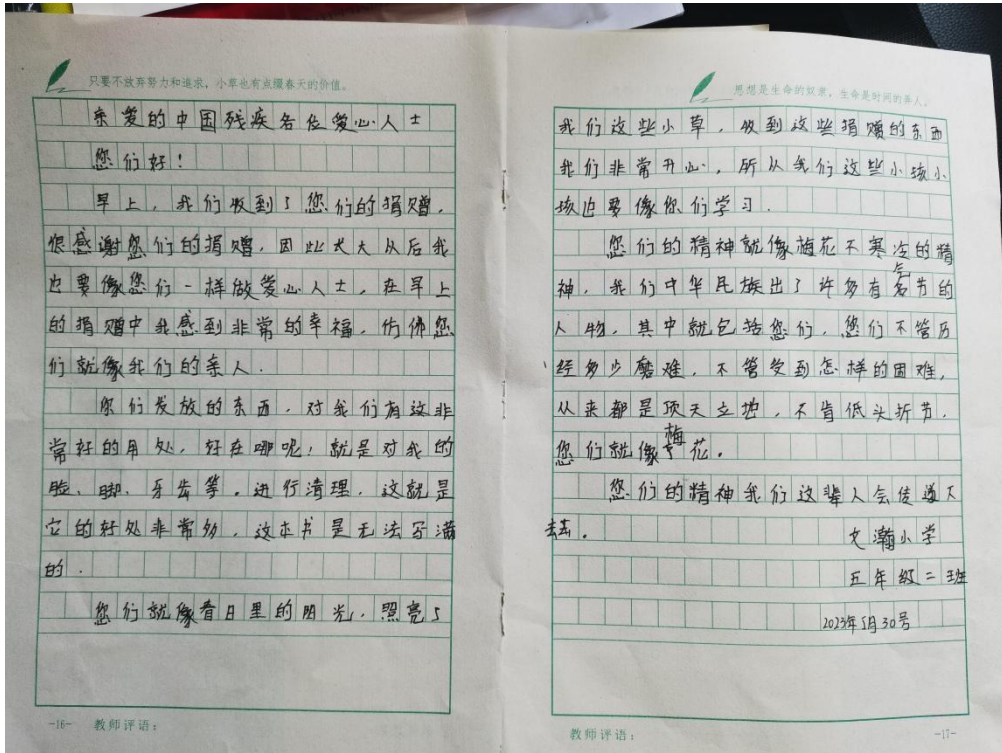 只要不放弃努力和追求，小草也有点缀春天的价值。
亲爱的中国残疾各位爱心人士
您们好！
早上，我们收到了您们的捐赠，
很感谢您们的捐赠，因此长大从后我
也要像您们一样做爱心人士，在早上
的捐赠中我感到非常的幸福，仿佛您
们就像我们的亲人．
你们发放的东西．对我们有这非
常好的用处，好在哪呢！就是对我的
脸、脚、牙齿等．进行清理．这就是
它的好处非常多，这本书是无法写满
的．
您们就像春日里的阳光，照亮了
-16- 教师评语：
思想是生命的奴隶，生命是时间的弄人。
我们这些小草，收到这些捐赠的东西
我们非常开心，所从我们这些小孩小
孩也要像你们学习．
您们的精神就像梅花不寒冷的精
神，我们中华民族出了许多有气节的
人物，其中就包括您们，您们不管历
经多少磨难，不管受到怎样的困难，
从来都是顶天立地，不肯低头折节，
您们就像梅花。
您们的精神我们这辈人会传递下
去．
文瀚小学
五年级二班
2023年5月30号
教师评语： -17-